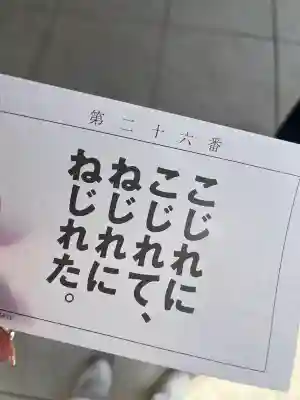 第二十六番
こじれに
こじれて、
ねじれに
ねじれた。